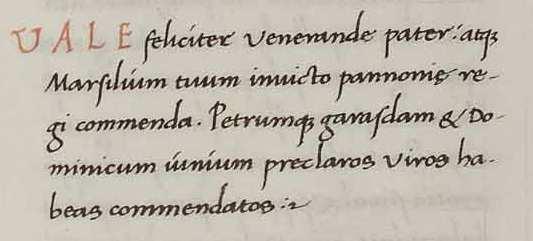 VALE feliciter Venerande pater: atqꝫ
Marsilium tuum invicto pannonię re-
gi commenda. Petrumqꝫ garasdam & Do-
minicum iunium preclaros viros ha-
beas commendatos :~